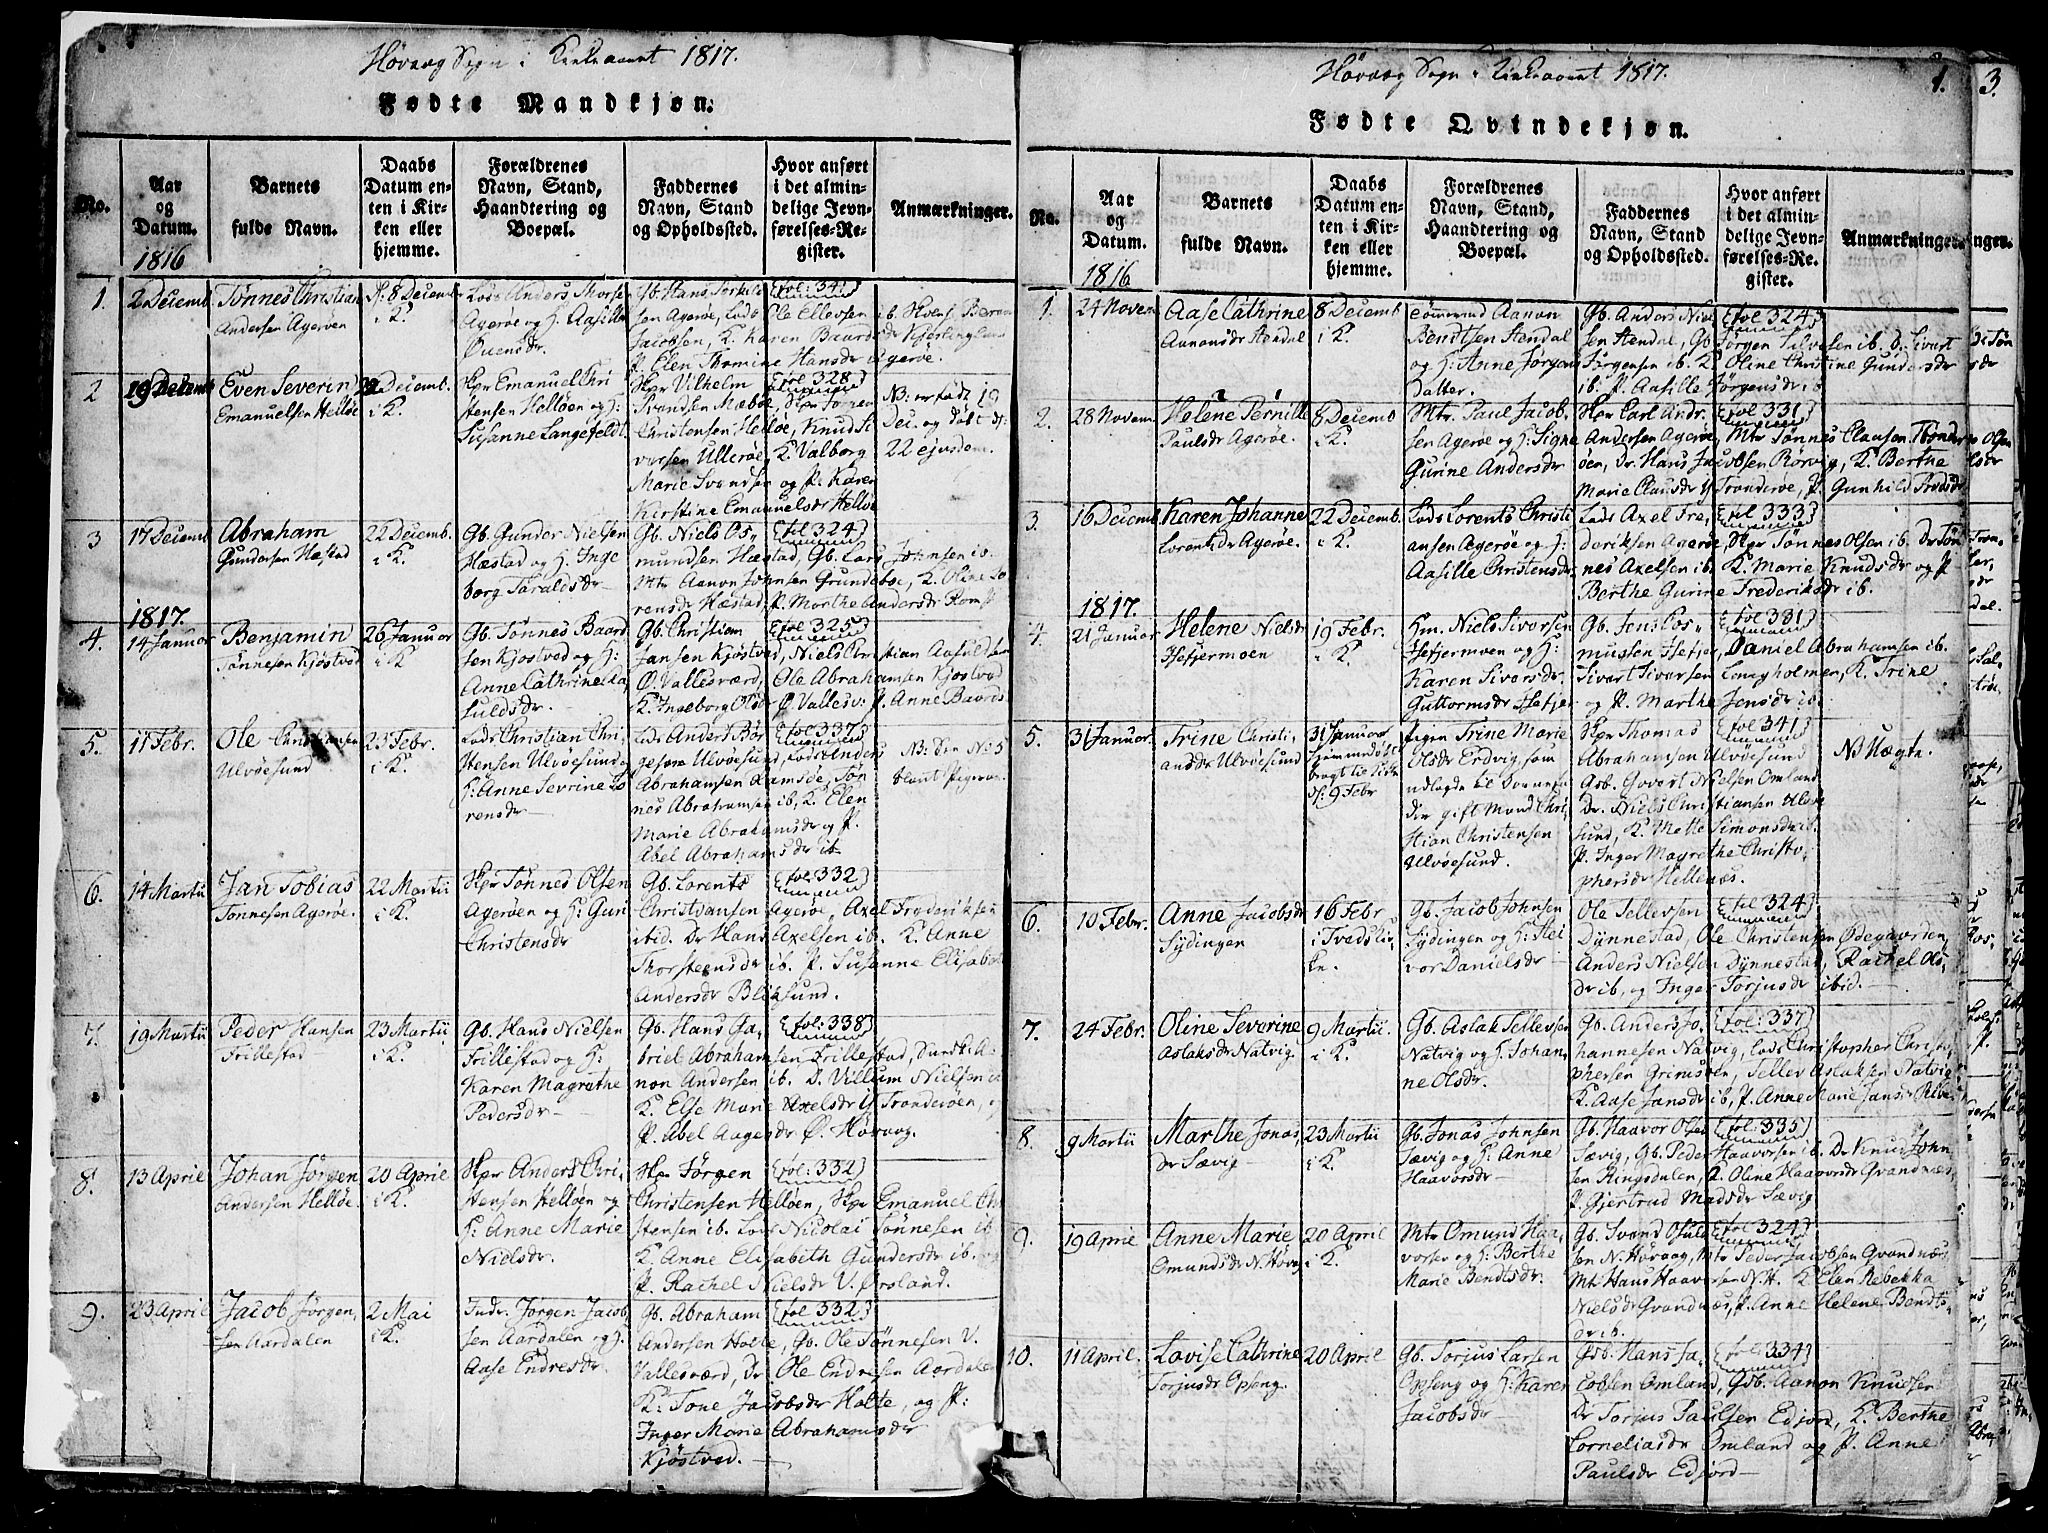 Høvaag Sogn i Kirkeaaret 1817.
Fødte Mandkjøn.
No.
Aar og Datum.
Barnets fulde Navn.
Daabs Datum enten i Kirken eller hjemme.
Forældrenes Navn, Stand, Haandtering og Boepæl.
Faddernes Navn, Stand og Opholdssted.
Hvor anført i det almindelige Jevnførelses-Register.
Anmærkninger.
1816
1.
2 Decemb
Tønnes Christian
Andersen Agerøen
8 Decemb
i K.
Lods Anders Thorsen
Agerøe og H. Aasille
Ovensdr.
Gb. Hans Terkils
sen Agerøe, Lods Ole Ellevsen ib.
Jacobsen, K. Karen Baardsdr
P. Elen Thomine Hansdr Agerøe.
fol: 341
2
19 Decemb
Even Severin
Emanuelsen Helløe
22 Decemb.
i K.
Skpr Emanuel Chri
stensen Helløen og H:
Susanne Langefeldt
Skpr Vilhelm
Svendsen Mæbøe,
Christensen Helløe, Knud Si
vorsen Ullerøe, K. Valborg
Marie Svendsdr og P. Karen
Kirstine Emanuelsdr Helløe
fol 328
NB: er født 19
Dec. og døbt d:
22 ejusdem.
3
17 Decemb
Abraham
Gundersen Hæstad
22 Decemb.
i K.
Gb. Gunder Nielsen
Hæstad og H. Inge
borg Taraldsdr
Gb. Niels Os-
mundsen Hæstad, Gb. Lars Johnsen ib.
Mtr Aanon Johnsen Grundebøe, K. Oline Lo
rensdr Hæstad, P. Marthe Andersdr
fol 324
1817.
4
14 Januar
Benjamin
Tønnesen Kjøstved
26 Januar
i K
Gb. Tønnes Baard
sen Kjøstved og H:
Anne Cathrine
sulds dr.
Gb. Christian
Jansen Kjøstved, Niels Christian Aasuldsen
Ø. Vallesværd, Ole Abrahamsen Kjøstved
K. Ingeborg Olsdr Ø. Vallesv: P. Anne Baards
fol 325
5.
11 Febr.
Ole Christiansen
Ulvøesund
23 Febr.
i K.
Lods Christian Chri-
stensen Ulvøesund og
H: Anne Sevrine Lo
rensdr
Lods Anders Bør
gesen Ulvøesund, Lods Anders
Abrahamsen Ramsøe, Tøn
nes Abrahamsen ib, K. Elen
Marie Abrahamsdr og P.
Abel Abrahamsdr ib
fol 337
NB: See No 5
blant Pigerne.
6.
14 Martii
Jan Tobias
Tønnesen Agerøe.
22 Martii
i K.
Skpr Tønnes Olsen
Agerøen og H: Guri
Christensdr
Gb. Lorents
Christiansen Agerøe, Axel Frederiksen
ibid. Dr Hans Axelsen ib. K. Anne
Thorsteensdr ib. P. Susanne Elisabet
Andersdr Bliksund.
fol. 332
7.
19 Martii
Peder Hansen
Trillestad
23 Martii
i K.
Gb. Hans Nielsen
Trillestad og H:
Karen Magrethe
Pedersdr
Gb. Hans Ga-
briel Abrahamsen Trillestad,
non Andersen ib. D. Villum Nielsen
K. Else Marie Axelsdr Y Tronderøen,
P. Abel Aagesdr Ø. Høvaag.
fol: 338
8.
13 Aprile
Johan Jørgen
Andersen Helløe.
20 Aprile
i K.
Skpr Anders Chri-
stensen Helløen og
H: Anne Marie
Nielsdr.
Skpr Jørgen
Christensen Helløen, Skpr Emanuel Chr
stensen ib. Nicolai Tønnesen ib
K. Anne Elisabeth Gundersdr ib. og
P. Rachel Nielsdr V. Ørsland.
fol: 332
9.
23 April
Jacob Jørgen-
sen Aardalen
2 Mai
i K.
Indr. Jørgen Jacob
sen Aardalen og H.
Aase Endresdr
Gb. Abraham
Andersen Holte, Gb. Ole Tønnesen V.
Vallesværd, Dr Ole Endresen Aardalen
K. Tone Jacobsdr Holte, og P:
Inger Marie Abrahamsdr
Kjøstved.
fol 332
Høvaag Sogn i Kirkeaaret 1817.
1.
3.
Fødte Qvindekjøn.
No.
Aar og Datum.
Barnets fulde Navn.
Daabs Datum enten i Kirken eller hjemme.
Forældrenes Navn, Stand, Haandtering og Boepæl.
Faddernes Navn, Stand og Opholdssted.
Hvor anført i det almindelige Jevnførelses-Register.
Anmærkninger.
1816
1.
24 Novem
Aase Cathrine
Aanonsdr Stendal
8 Decemb
i K.
Tømmermd Aanon
Bendtsen Stendal
og H. Anne Jørgens
datter.
Gb. Anders Niel
sen Stendal, Gb Jørgen ib. D. Sivert
Jørgensen ib. K. Oline Christine Gundersdr
ib. P. Aasille Jørgensdr ib
fol 324
2.
28 Novem
Helene Pernille
Paulsdr Agerøe.
8 Decemb
i K.
Mtr. Paul Jacob
sen Agerøe og H: Signe
Gurine Andersdr
Skpr Carl Andr.
Andersen Agerøe, Mtr Tønnes Clausen Tronder
øen, Dr. Hans Jacobsen Rørvig, K. Berthe
Marie Clausdr Y Tronderøe, P. Gunhild
fol 331
3.
16 Decemb.
Karen Johanne
Lorentsdr Agerøe.
22 Decemb.
i K.
Lods Lorents Christi
ansen Agerøe og H:
Aasille Christensdr
Lods Axel Fre-
deriksen Agerøe, Skpr Tønnes Olsen ib. Dr Tøn
nes Axelsen ib. K. Marie Knudsdr og P
Berthe Gurine Frederiksdr ib.
fol 333
1817.
4.
21 Januar
Helene Nielsdr
Hæfjermoen
19 Febr.
i K.
Hm. Niels Sivorsen
Hæfjermoen og H:
Karen Sivorsdr
Gb. Jens Ros-
mussen Hæfjer, Daniel Abrahamsen ib.
Sivort Sivorsen Langholmen, K. Trine
Guttormsdr Hæfjer og P. Marthe Jensdr ib.
fol 381
5.
31 Januar.
Trine Christi
ansdr Ulvøesund
31 Januar
hjemmedøbt
bragt til Kirken
d: 9 Febr
Pigen Trine Marie
Olsdr Erdvig, som
udlagde til Barnefa
der gift Mand Chri-
stian Christensen
Ulvøesund.
Skpr Thomas
Abrahamsen Ulvøesund
Gdb. Govert Nielsen Omland
Dr. Niels Christiansen Ulvøe
sund, K. Mette Simonsdr ib.
P. Inger Magrethe Christo-
phersdr Hellenæs.
fol 341
NB Uægte.
6.
10 Febr.
Anne Jacobsdr
Sydingen
16 Febr
i Tvedskir
ken.
Gb. Jacob Johnsen
Sydingen og H: Sei
vor Danielsdr
Ole Tellevsen
Dynnestad, Ole Christensen Ødegaarden,
Anders Nielsen Dynnestad, Rachel Ols-
dr ib, og Inger Torjusdr ibid.
fol 324
7.
24 Febr.
Oline Severine
Aslaksdr Natvig.
9 Martii.
i K.
Gb. Aslak Tellevsen
Natvig og H. Johan-
ne Olsdr.
Gb. Anders Jo-
hannesen Natvig, Lods Christopher Christo
phersen Grimsøen, Tellev Aslaksen Natvig
K. Aase Jansdr ib, P. Anne Marie Jansdr
fol: 337
8.
9 Martii
Marthe Jonas-
dr Sævig
23 Martii
i K.
Gb. Jonas Johnsen
Sævig og H. Anne
Haavorsdr
Gb. Haavor Olsen
Sævig, Gb. Peder Haavorsen ib. Dr Knud John
sen Ringsdalen, K. Oline Haavorsdr Grandnæs,
P. Gjertrud Madsdr Sævig
fol. 335
9.
19 Aprie
Anne Marie
Omundsdr N. Høvag
20 April
i K.
Mtr Omund Haa-
vorsen og H: Berthe
Marie Bendtsdr.
Gb. Svend Osuld
sen N. Høvaag, Mtr Peder Jacobsen Grandnæs
Mtr Hans Haavorsen N. H. K. Elen Rebekka
Nielsdr Grandnæs, P. Anne Helene Bendts-
dr ib.
fol 324
10.
11 April.
Lovise Cathrine
Torjusdr Opseng.
20 April
Gb. Torjus Larsen
Opseng og H: Karen
Jacobsdr
Gdb. Hans Ja-
cobsen Omland, Gdb. Aanon Knudsen
Dr Torjus Paulsen Edjord, K. Berthe
Corneliasdr Omland og P. Anne
Paulsdr Edjord
fol. 334